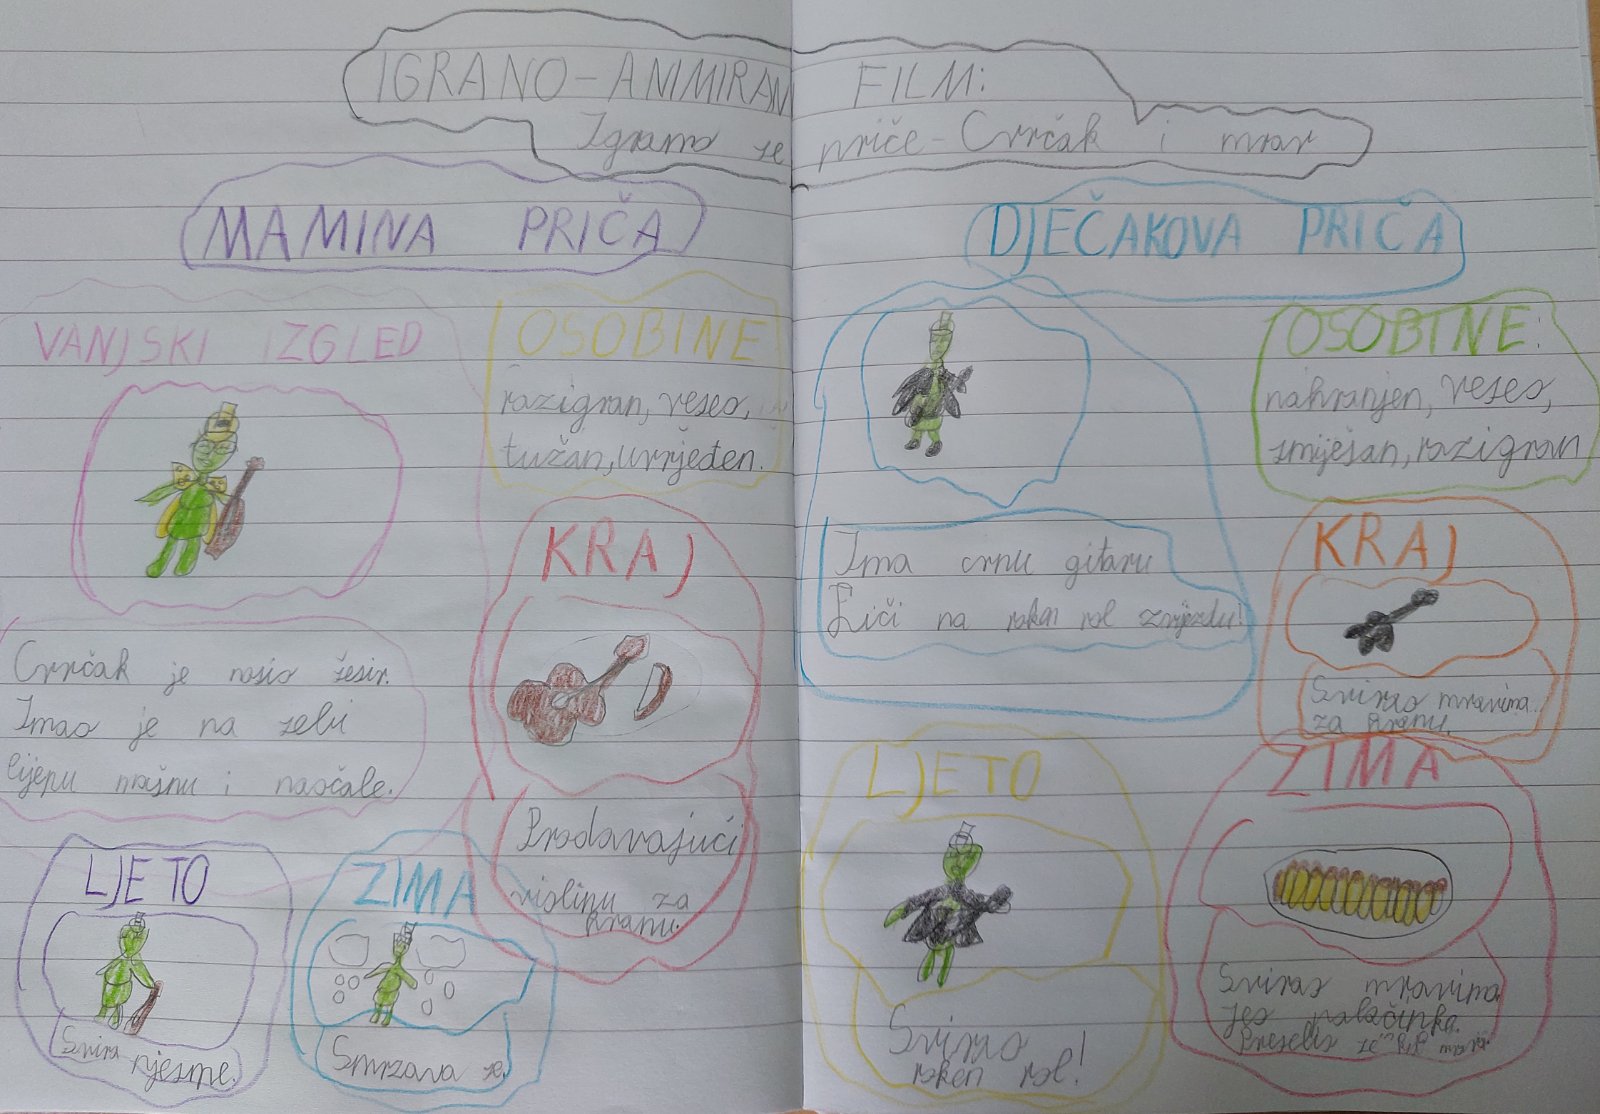 IGRANO-ANIMIRAN FILM:
Igramo se priče-Cvrčak i mrav
MAMINA PRIČA
VANJSKI IZGLED
Cvrčak je nosio šešir.
Imao je na sebi
lijepu mašnu i naočale.
OSOBINE
razigran, veseo,
tužan, uvrjeđen.
KRAJ
Prodavajući
violinu za
hranu.
LJETO
Svira pjesme.
ZIMA
Smrzava se.
DJEČAKOVA PRIČA
Ima crnu gitaru
Liči na roken rol zvijezdu!
OSOBINE:
nahranjen, veseo,
smiješan, razigran
KRAJ
Svirao mravima
za hranu.
LJETO
Svirao
roken rol!
ZIMA
Svirao mravima
jeo palačinke.
Preselio se